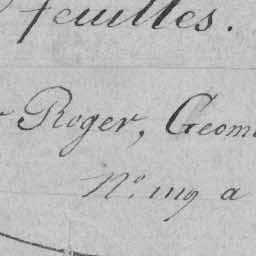 feuilles.
Roger, Géom
N.º 1119 a